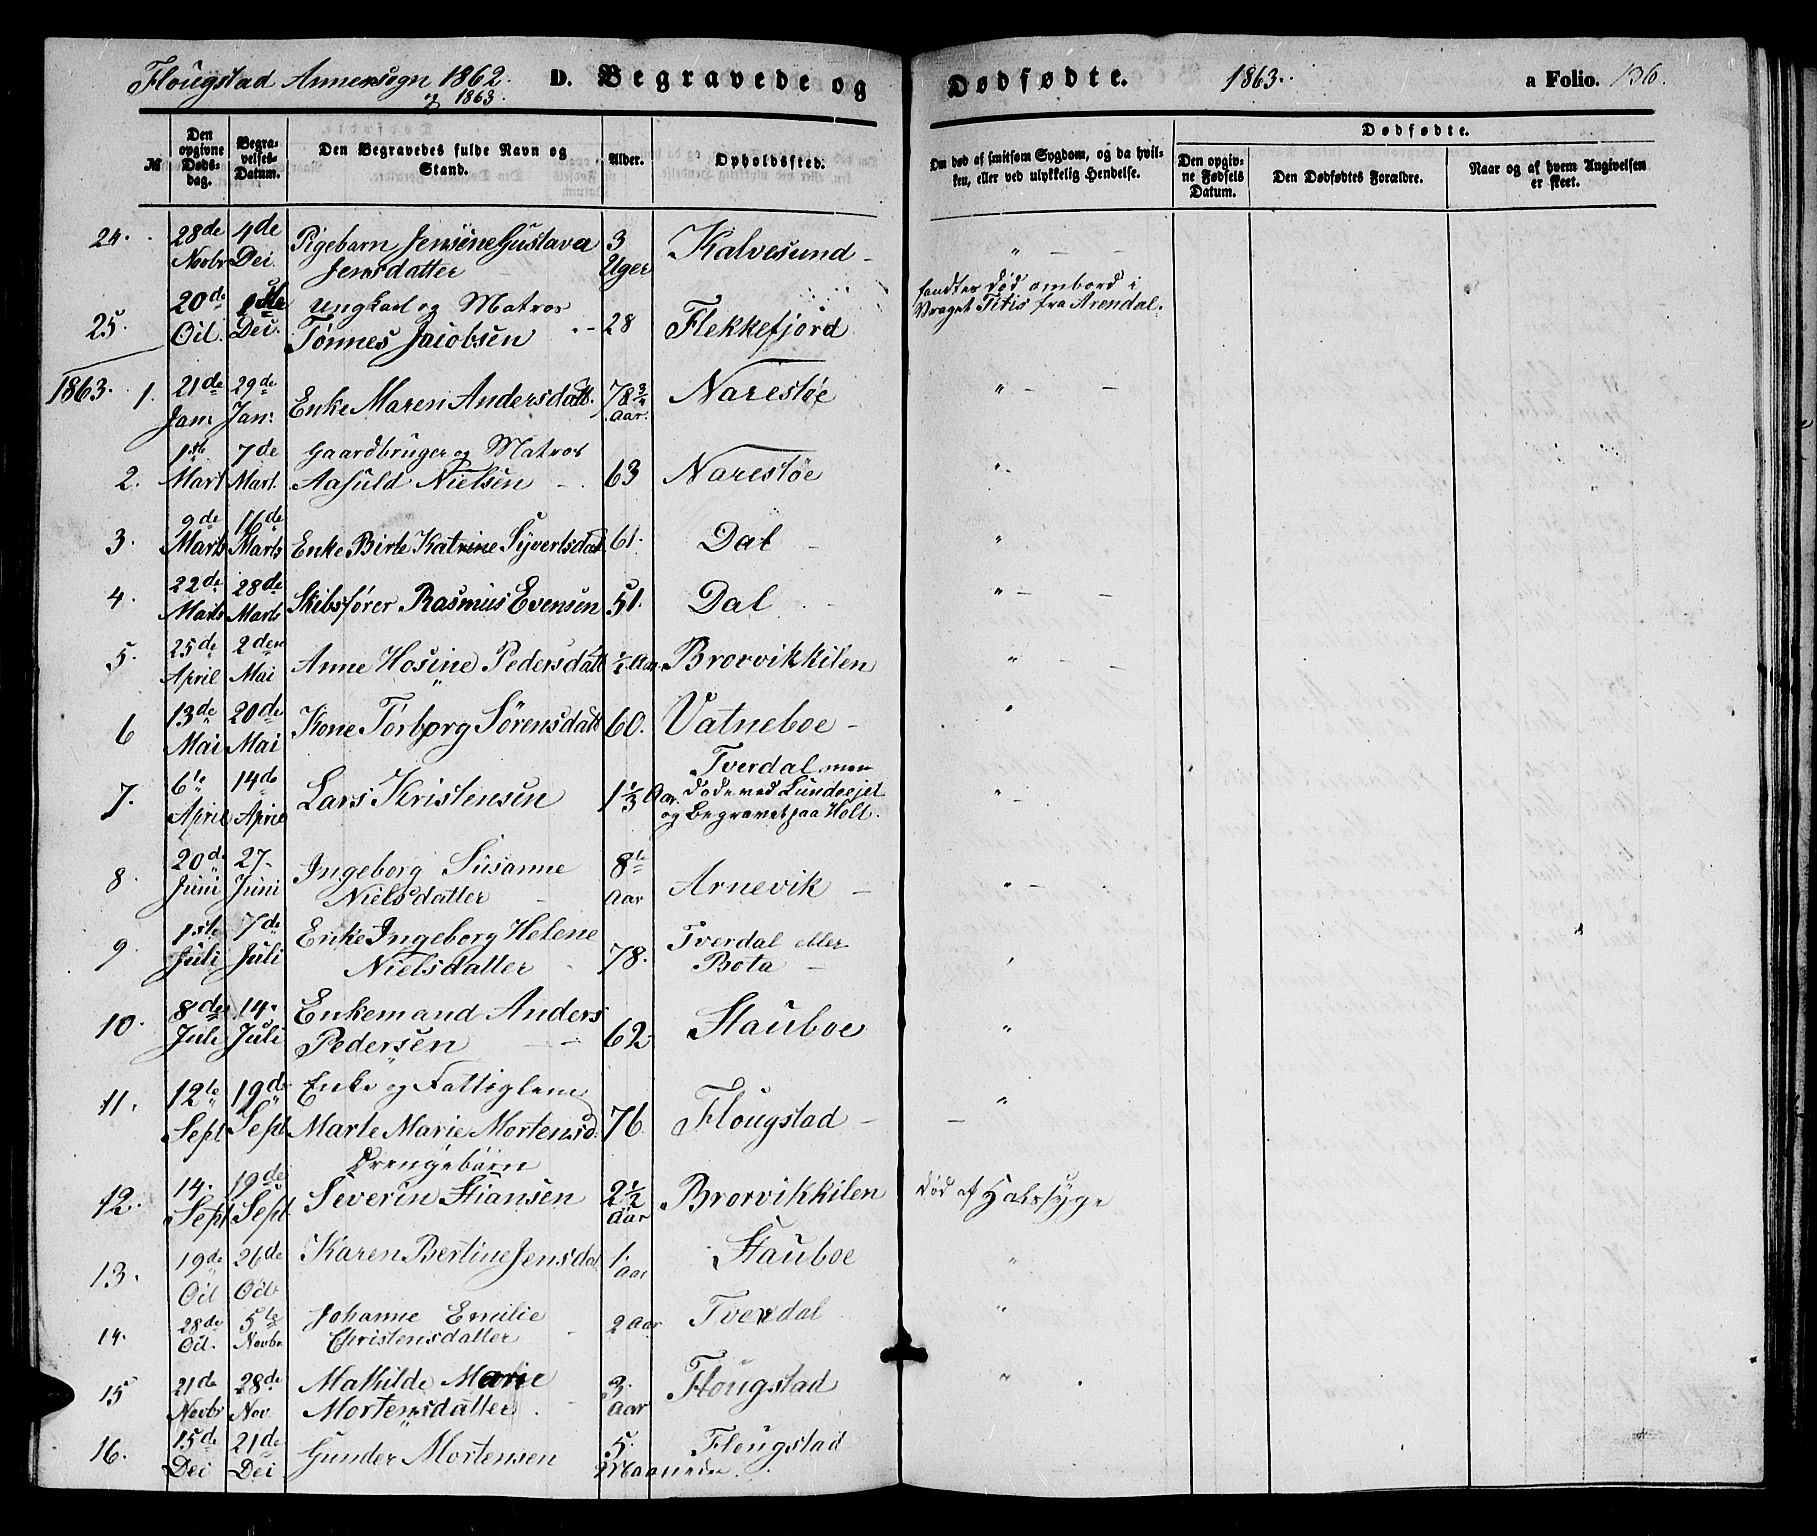 Flougstad Annexsogn 1862. D. Begravede og Dødfødte. 1863. a Folio. 136.
og 1863.
No Den opgivne Døds-dag. Begra-velses-Datum. Den Begravedes fulde Navn og Stand. Alder. Opholdssted. Om død af smitsom Sygdom, og da hvil-ken, eller ved ulykkelig Hendelse. Dødfødte.
Den opgiv-ne Fødsels Datum. Den Dødfødtes Forældre. Naar og af hvem Angivelsen er skeet.
24. 28de 4de Pigebarn Jensine Gustava 3 Kalvesund
Novbr Dec. Jensdatter Uger
25. 20de Ungkarl og Matros fandtes død ombord i
Oct. Dec. Tønnes Jacobsen 28 Flekkefjord Vraget Titis fra Arendal.
1863. 1. 21de 29de Enke Maren Andersdatt. 78 3/4 Narestøe "
Jan: Jan: Aar.
2. 1ste 7de Gaardbruger og Matros
Mart Mart. Aasuld Nielsen 63 Narestøe "
3. 9de 16de Enke Birte Katrine Syvertsdat 61. Dal "
Marts Marts
4. 22de 28de Skibsfører Rasmus Evensen 51. Dal "
Marts Marts
5. 25de 2den Anne Hosine Pedersdatt 1/2 Aar Brorvikkilen "
April Mai
6 13de 20de Kone Torborg Sørensdatt 60. Vatneboe "
Mai Mai
7. 6te 14de Lars Kristensen 1 1/3 Aar. Tverdal, men
April April døde ved Lundeejet "
og Begravet paa Holt.
8. 20de 27. Ingeborg Susanne 8te Arnevik "
Juni Juni Nielsdatter Aar
9. 1ste 7de Enke Ingeborg Helene 78. Tverdal eller
Juli Juli Nielsdatter Bota
10. 8de 14. Enkemand Anders 62 Stauboe "
Juli Juli Pedersen
11. 12te 19de Enke og Fattiglem
Sept Sept Marte Marie Mortensd. 76 Flougstad "
12. 14. 19de Drengebarn
Sept Sept. Severin Stiansen 2 1/2 Aar Brorvikkilen død af Halssyge
13. 19de 26de Karen Bertine Jensdat 1. Stauboe "
Oct Oct Aar
14. 28de 5te Johanne Emilie 2 Aar Tverdal "
Oct. Novbr Christensdatter
15 21de 28de Mathilde Marie 3. Flougstad "
Novbr Nov. Mortensdatter Aar
16. 15de 21de Gunder Mortensen 5. Flougstad
Dec Dec Maaneder.